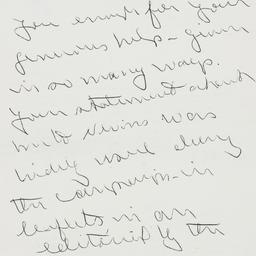 you enough for your
generous help - given
in so many ways.
Your statement about
was
widely used during
the campaign - in
leaflets in an
editorial by the